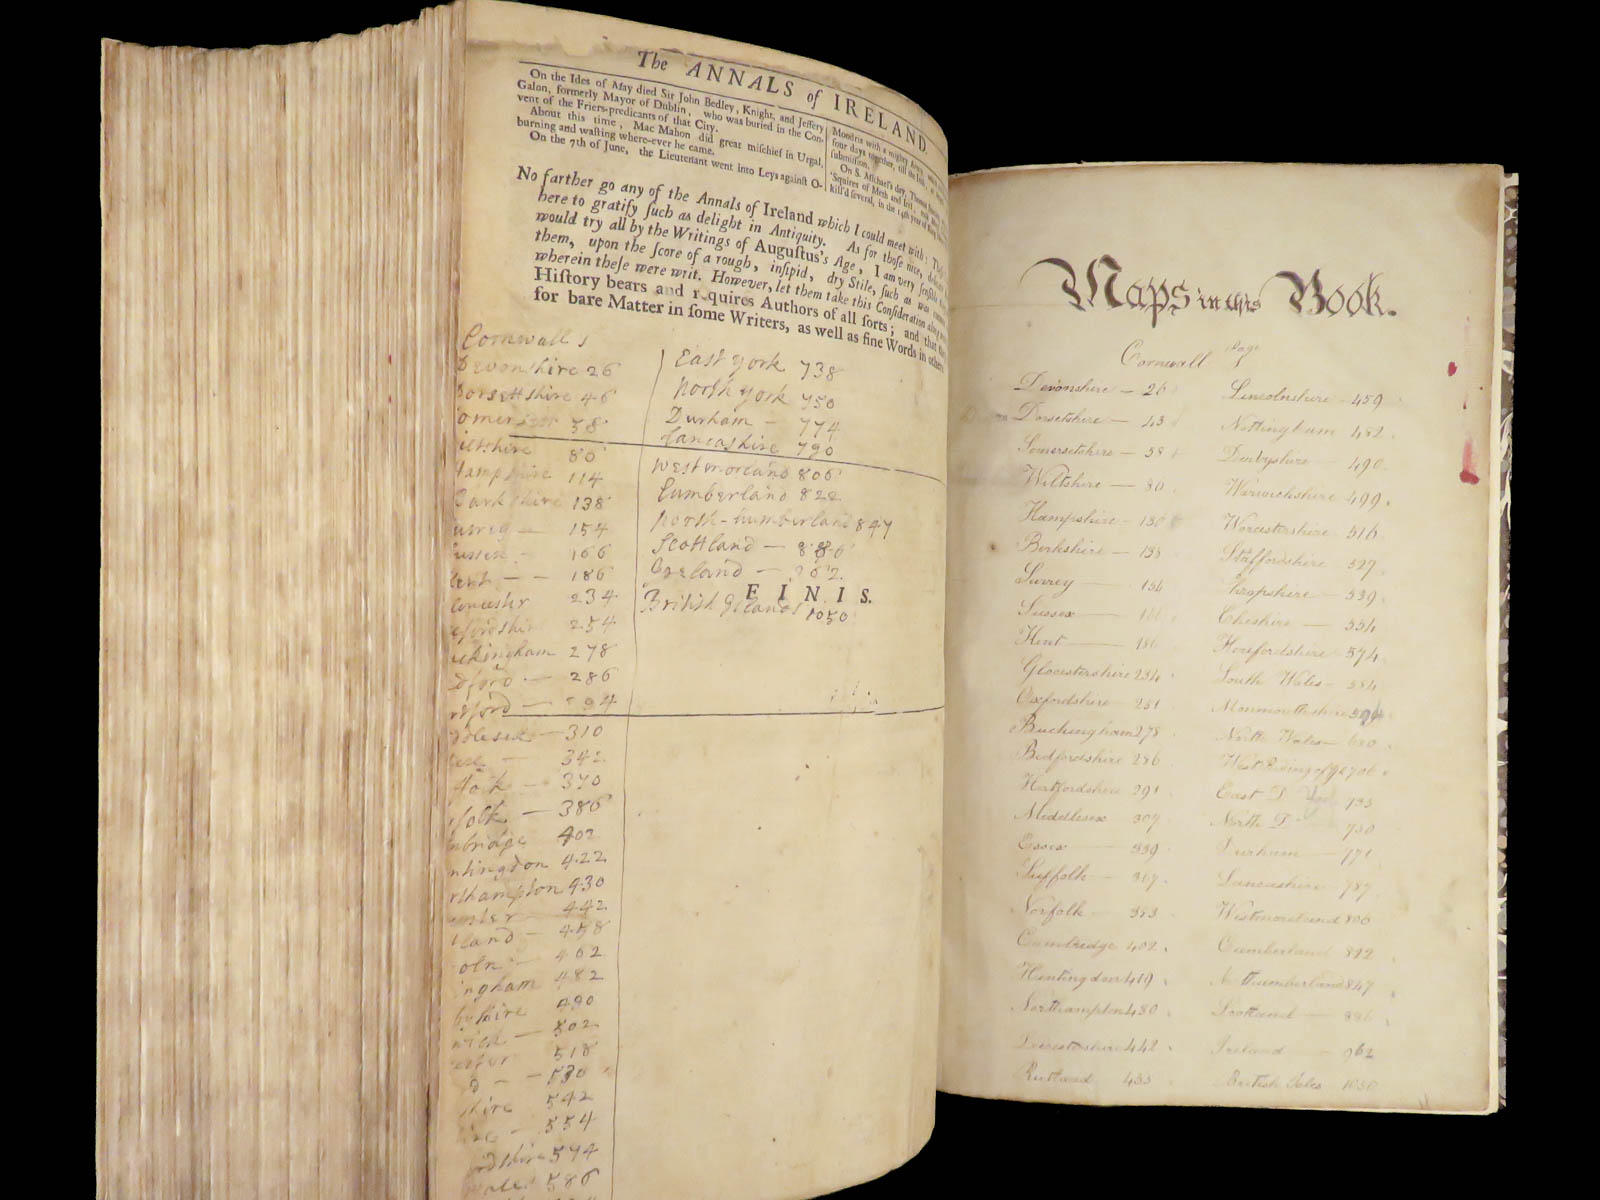 The ANNALS of IRELAND.
On the Ides of May died Sir John Bedley, Knight, and Jeffery
Galon, formerly Mayor of Dublin, who was buried in the Con-
vent of the Friers-predicants of that City.
About this time, Mac Mahon did great miſchief in Urgal,
burning and waſting where-ever he came.
On the 7th of June, the Lieutenant went into Leys againſt O-
Mordris with a mighty Army,
four days together, till the
ſubmiſſion.
On S. Michael's day, Thomas
'Squires of Meth and
kill'd ſeveral, in the 14th year of King
No farther go any of the Annals of Ireland which I could meet with: Theſe
here to gratify ſuch as delight in Antiquity. As for thoſe nice, delicate
would try all by the Writings of Auguſtus's Age, I am very ſenſible
them, upon the ſcore of a rough, inſipid, dry Stile, ſuch as was common
wherein theſe were writ. However, let them take this Conſideration along
Hiſtory bears and requires Authors of all ſorts; and that
for bare Matter in ſome Writers, as well as fine Words in others.
Cornwall 1
Devonshire 26
Dorsettshire 46
omersett 58
iltshire 80
hampshire 114
Barkshire 138
urrey — 154
ussex - 166
kent — 186
loucestr 234
xfordshire 254
uckingham 278
edford — 286
retford — 294
ddlesex — 310
sex — 342
ffolk — 370
rfolk — 386
mbridge 402
ntingdon 422
rthampton 430
cester 442
tland — 458
coln — 462
ingham 482
byshire 490
wick — 502
cester 518
d — 530
shire 542
ire — 554
fordshire 574
wales 586
East york 738
North york 750
Durham — 774
Lancashire 790
westmorland 806
Cumberland 822
North-humberland 847
Scottland — 886
Ireland — 962
British Islands 1050
FINIS.
Maps in this Book.
Page
Cornwall 1
Devonshire — 26
Dorsetshire — 43
Somersetshire — 58
Wiltshire — 80
Hampshire — 130
Berkshire — 138
Surrey — 154
Sussex — 166
Kent — 186
Glocestershire 234
Oxfordshire — 251
Buckingham 278
Bedfordshire 286
Hertfordshire 291
Middlesex 309
Essex — 339
Suffolk — 367
Norfolk — 383
Cambridge 402
Huntingdon 419
Northampton 430
Leicestershire 442
Rutland 455
Lincolnshire — 459
Nottingham 482
Derbyshire — 490
Warwickshire 499
Worcestershire 516
Staffordshire 527
Shropshire — 539
Cheshire — 554
Herefordshire 574
South Wales — 584
Monmouthshire 594
North Wales — 680
West Riding of Yk 706
East D. York 735
North D. 750
Durham — 771
Lancashire — 787
Westmoreland 806
Cumberland 822
Northumberland 847
Scotland — 886
Ireland — 962
British Isles 1050